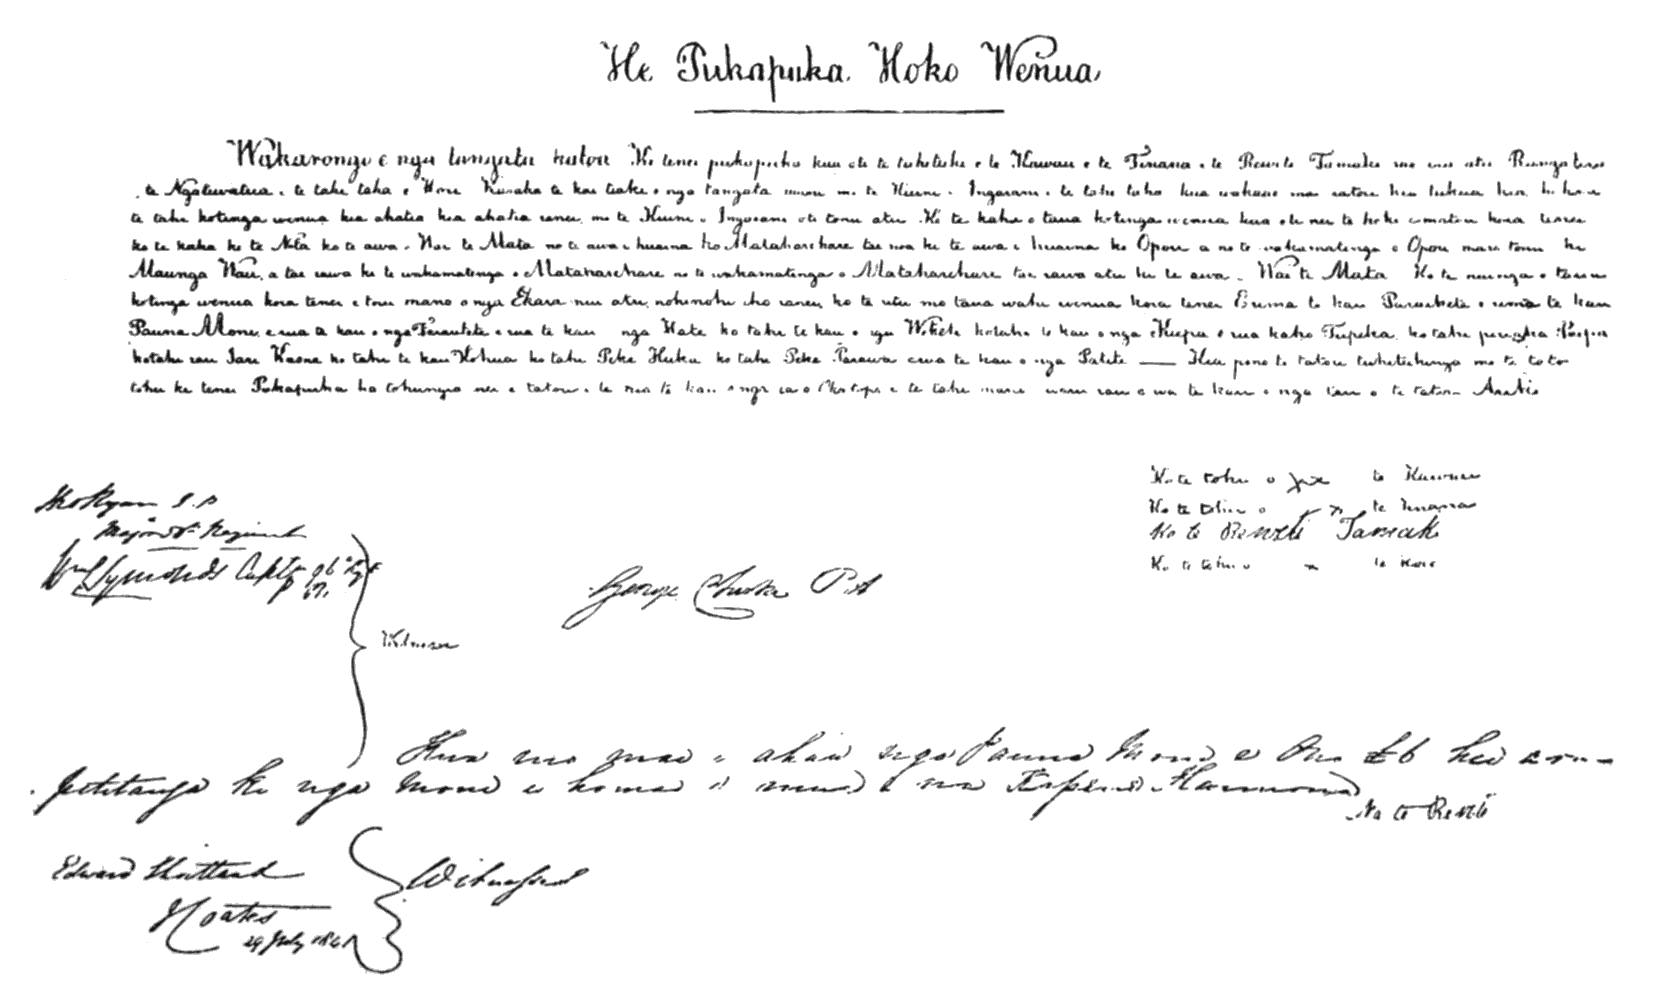 He Pukapuka Hoko Wenua
Wakarongo e nga tangata katoa Ko tenei pukapuka kua oti te tuhituhi e te Kawau e te Tinana e te Reweti Tamaki me era atu Rangatira
o te Ngatiwatua o te tahi taha e Hori Karaka te kai tiaki o nga tangata maori mo te Kuini o Ingarani o te tahi taha kua wakaae ma ratou kia tukua kia hokona
te tahi kotinga wenua kia ahatia kia ahatia ranei mo te Kuini o Ingarani oti tonu atu Ko te kaha o taua kotinga wenua kua oti nei te hoko e matou koia tenei
ko te kaha ki te Nota ko te awa o Wai te Mata no te awa e huaina ko Mataharehare tae noa ki te awa e huaina ko Opou a no te wakamatenga o Opou mara tonu ki
Maunga Wau, a tae rawa ki te wakamatenga o Mataharehare no te wakamatenga o Mataharehare tae rawa atu ki te awa o Wai te Mata Ko te nuinga o taua
kotinga wenua koia tenei e toru mano o nga Ekara nui atu, nohinohi iho ranei, ko te utu mo taua wahi wenua koia tenei E rima te kau Paraikete e rima te kau
Pauna Moni, e rua te kau o nga Tarautete e rua te kau o nga Hate ko tahi te kau o nga Wekete kotahi te kau o nga Kiepa e wa kaho Tupeka, ko tahi pouaka Paipa
kotahi rau Iari Kaone ko tahi te kau Kohua ko tahi Peke Huka ko tahi Peke Parawa e rua te kau o nga Patiti — Koia pono te tatou tuhituhinga me ta tatou
tohu ki tenei Pukapuka ka tohungia nei e tatou i te rua te kau o nga ra o Oketopa i te tahi mano waru rau e wa te kau o nga tau o te tatou Ariki
Ko te tohu o x te Kawau
Ko te tohu o x te Tinana
Ko te Reweti Tamaki
Ko te tohu o x te Hore
Major Regiment
Wm C Symonds Captn 96 Regt
Witnesses
George Clarke P.A
Kua riro mai i ahau nga Pauna Moni e Ono £6 hei
ki nga moni e homai i mua e na Kapene
Na te Reweti
Edward Shortland
J Coates
29 July 1841
Witnesses